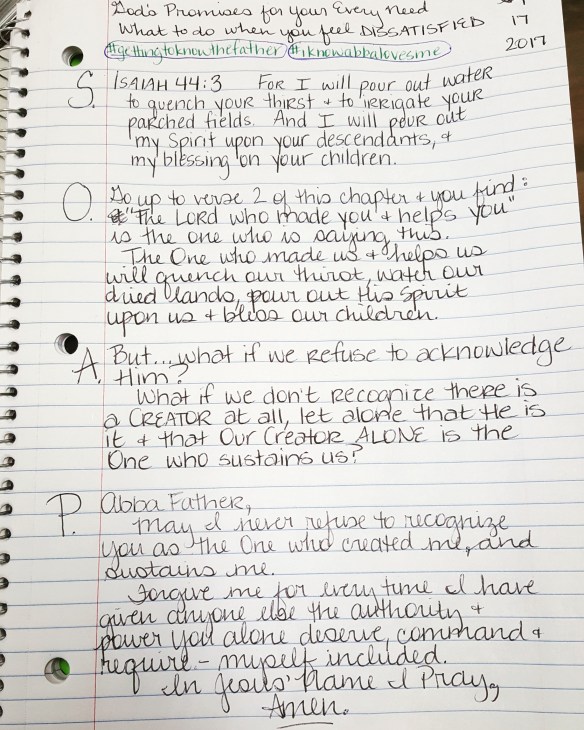 God's Promises for your Every need
What to do when you feel DISSATISFIED 17
#gettingtoknowthefather #iknowabbalovesme 2017
S. ISAIAH 44:3 FOR I will pour out water
to quench your thirst + to irrigate your
parched fields. And I will pour out
my Spirit upon your descendants, +
my blessing on your children.
O. Go up to verse 2 of this chapter + you find:
"The LORD who made you + helps you"
is the one who is saying this.
The One who made us + helps us
will quench our thirst, water our
dried lands, pour out His Spirit
upon us + bless our children.
A. But...what if we refuse to acknowledge
Him?
What if we don't recognize there is
a CREATOR at all, let alone that He is
it + that Our Creator ALONE is the
One who sustains us?
P. Abba Father,
May I never refuse to recognize
you as the One who created me, and
sustains me.
Forgive me for every time I have
given anyone else the authority +
power you alone deserve, command +
require - myself included.
In Jesus' Name I Pray,
Amen.